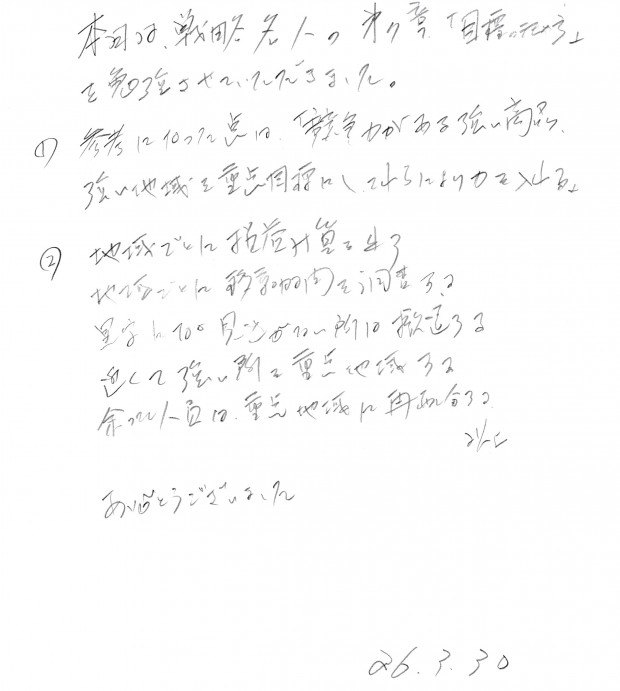 本日は、戦略名人の第2章「目標の決め方」
を勉強させていただきました。
① 参考になった点は、「競争力がある強い商品、
強い地域を重点目標にし、それらにより力を入れる」
② 地域ごとに損益計算を出す
地域ごとに移動時間を調査する
黒字になる見込がない所は撤退する
近くて強い所を重点地域する
余った人員は、重点地域に再配分する
以上
ありがとうございました
26.3.30